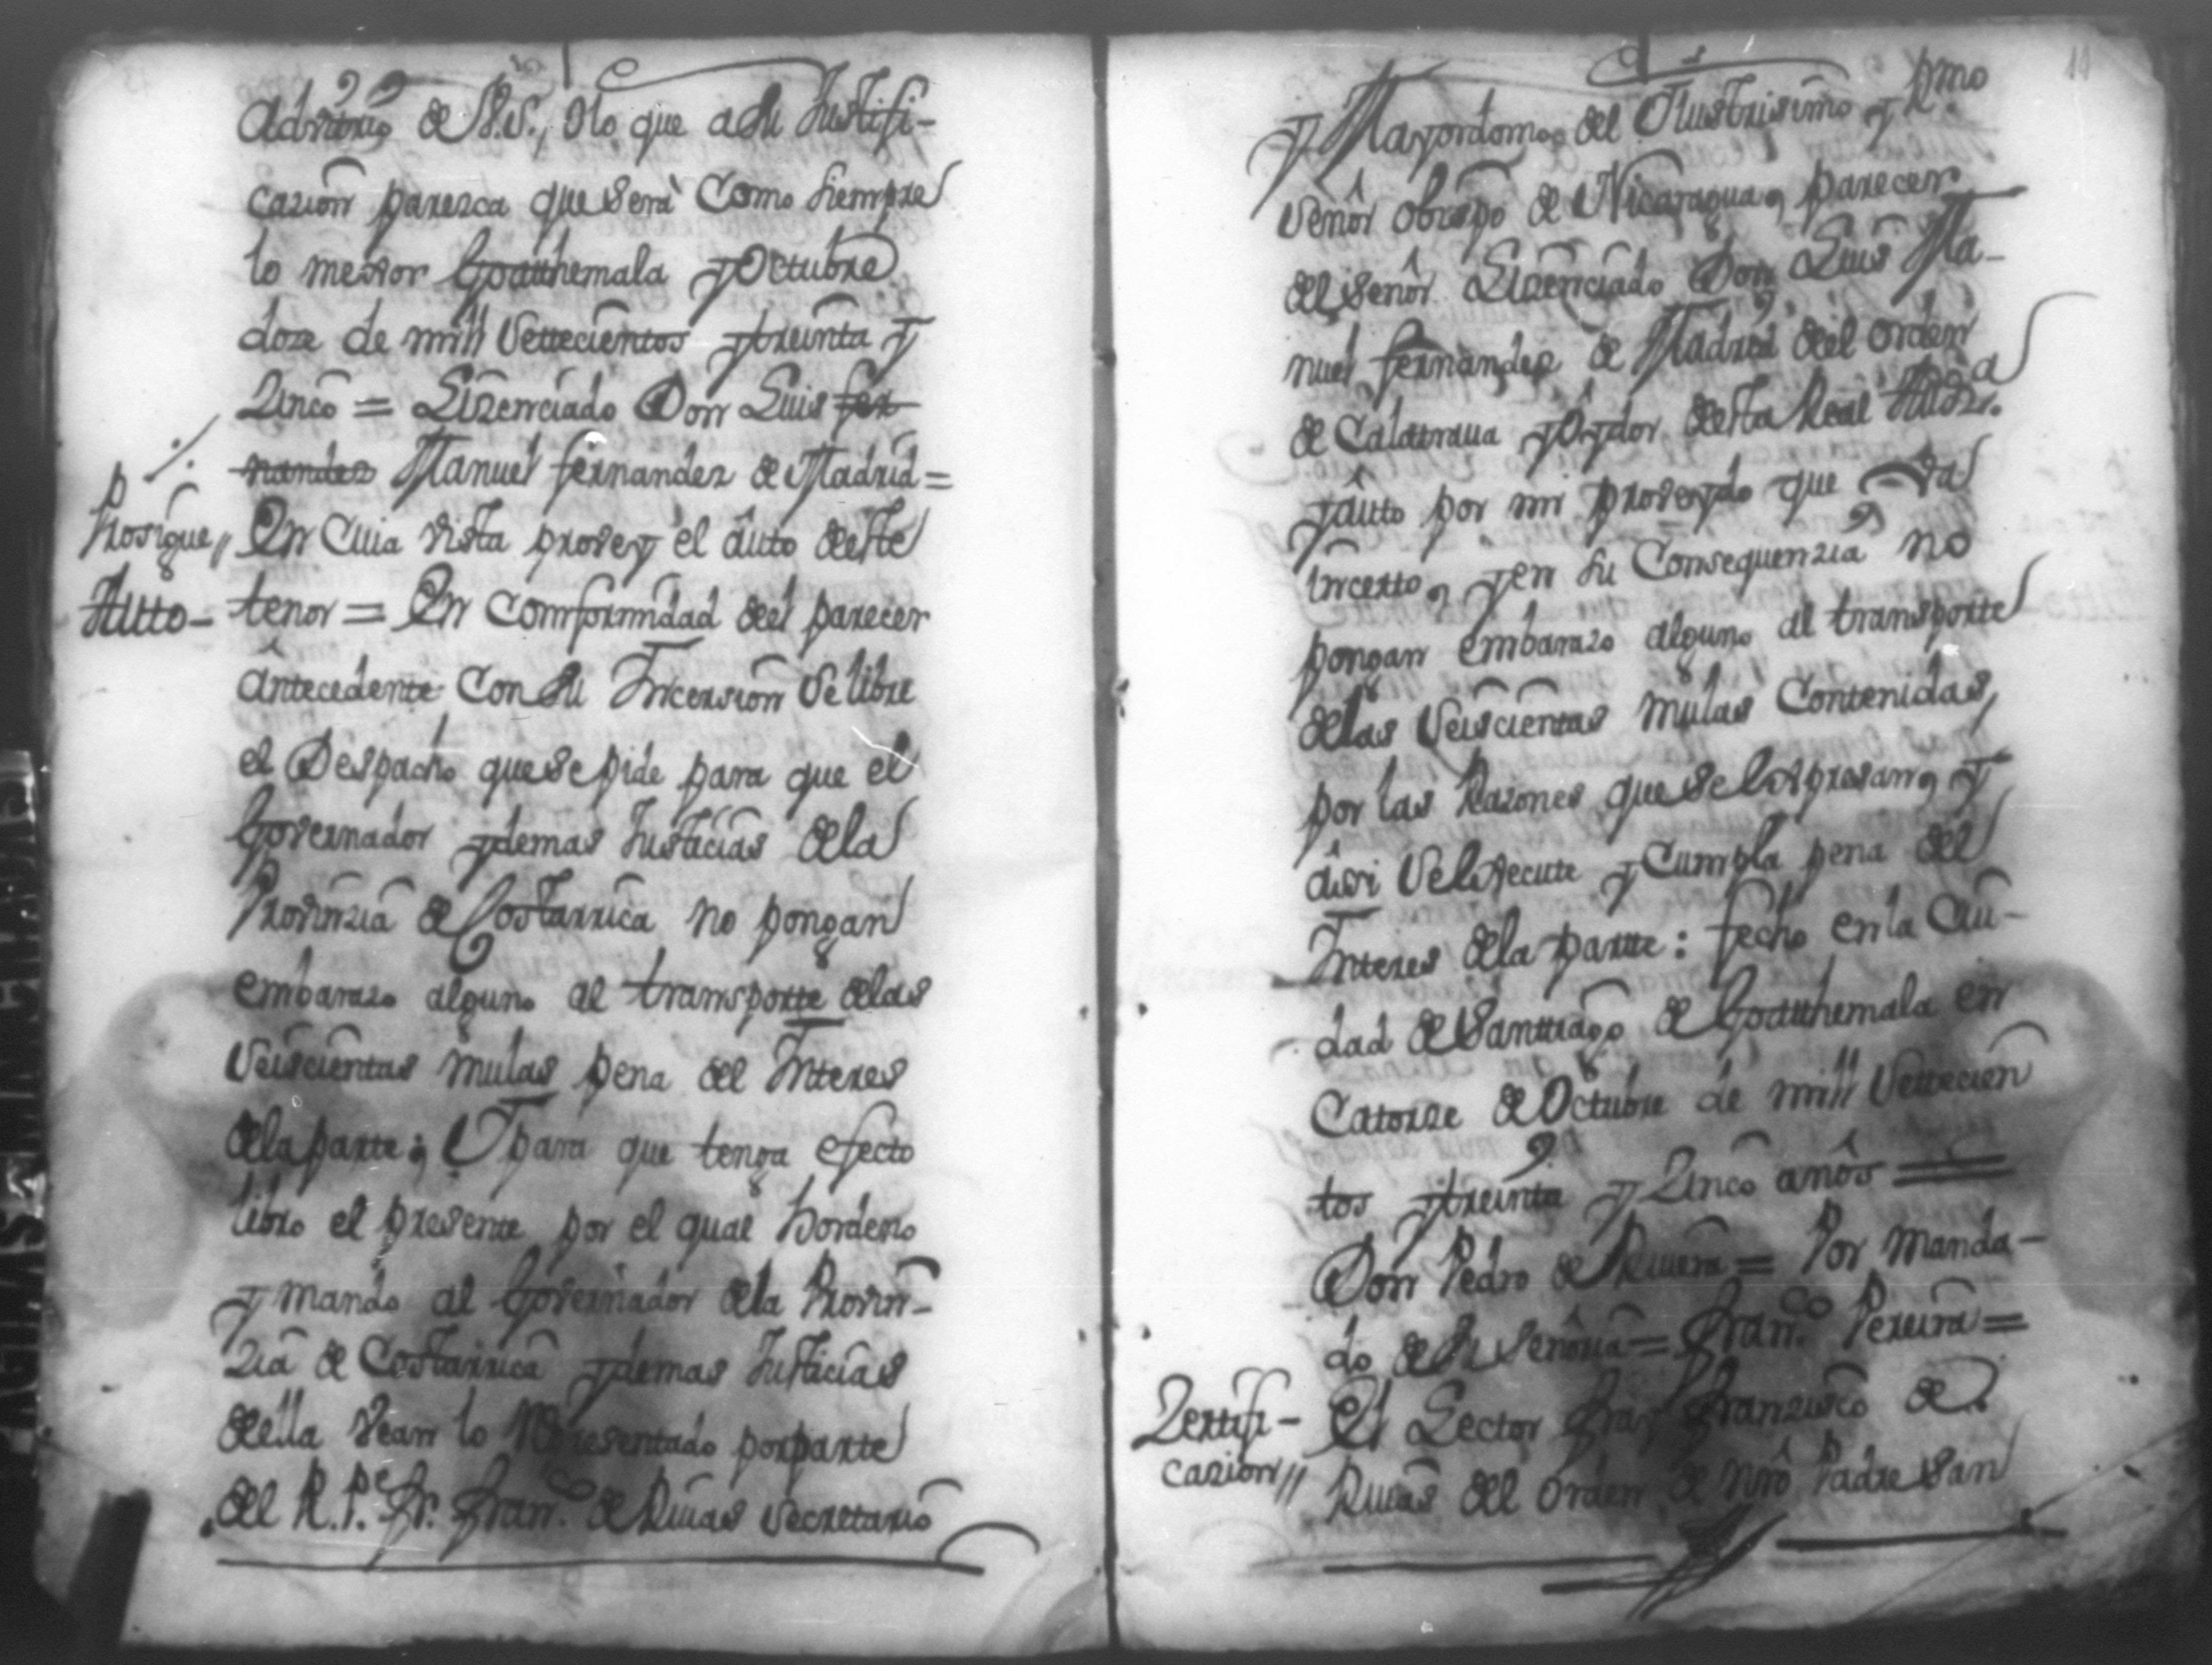 adbitrio de V.S., o lo que a su Justifi-
cazion paresca que será como siempre
lo mexor Goauthemala y Octubre
doze de mill settecientos y treinta y
zinco = Lizenciado Don Luis fer
nandez Manuel fernandez de Madrid =
Prosigue,, En cuia vista provey el auto deste
Autto- tenor = En comformidad del parecer
antecedente con su Incersion se libre
el Despacho que se pide para que el
Governador y demas Justicias de la
Provinzia de Costarrica no pongan
embarazo alguno al transporte de las
seiscientas mulas pena del Interes
de la parte; Y para que tenga efecto
libro el presente por el qual hordeno
y mando al Governador de la Provin-
zia de Costarrica y demas Justicias
de ella vean lo Representado por parte
del R. Pe. Fr. Franco. de Riuas secretario
y Mayordomo del Illustrisimo y Rmo.
señor obispo de Nicaragua, parecer
del señor Lizenciado Don Luis Ma-
nuel fernandez de Madrid del orden
de Calatraua y Oydor desta Real Audza.
y auto por mi proveydo que va
incerto, y en su Consequenzia no
pongan embarazo alguno al transporte
de las seiscientas mulas Contenidas,
por las Razones que se expresan, y
assi se execute y Cumpla pena del
Interes de la partte: fecho en la Ciu-
dad de Santtiago de Goauthemala en
Catorze de Octubre de mill settecien
tos y treinta y zinco años =
Don Pedro de Riuera = Por manda-
do de su señoria = Franco. Pereira =
Zertifi- El Lector Fray Franzisco de
cazion,, Riuas del orden de nro Padre San